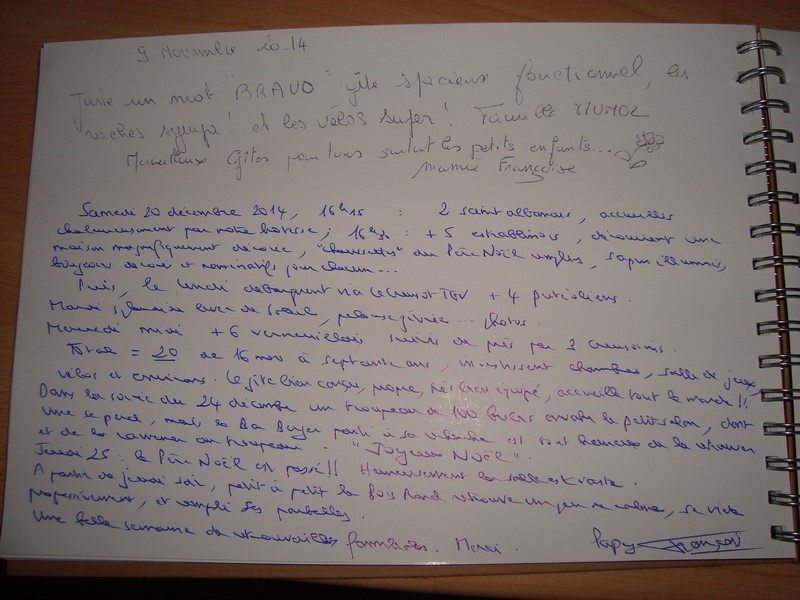 9 Novembre 2014
Juste un mot "BRAVO" gîte spacieux fonctionnel, les
vaches sympa! et les vélos super! Famille
Merveilleux Gîtes pour tous surtout les petits enfants...
Mamie Françoise
Samedi 20 décembre 2014, 16h15 : 2 saint albanais, accueillis
chaleureusement par notre hotesse; 16h30 : +5 , découvrent une
maison magnifiquement décorée, "chaussettes" du Père Noël remplies, sapin illuminé,
bougeoir décoré et nominatifs pour chacun...
Puis, le lundi débarquent via le Creusot TGV +4 putéoliens.
Mardi lever de soleil, pelouse givrée... photos.
Mercredi midi +6 verneuillois suivis de près par 3
Total = 20 de 16 mois à septante ans, investissent chambres, salle de jeux,
vélos et environs. Le gîte bien conçu, propre, très bien équipé, accueille tout le monde!!
Dans la soirée du 24 décembre un troupeau de 100 envahi le petit salon, dont
une se perd, mais la parti à sa recherche est tout heureux de la retrouver
et de la ramener au troupeau. "Joyeux Noël".
Jeudi 25 : le Père Noël est passé!! Heureusement la salle est vaste.
A partir de jeudi soir, petit à petit le bois rond retrouve un peu de calme, se vide
progressivement, et rempli ses poubelles.
Une belle semaine de retrouvailles familiales. Merci. Papy François